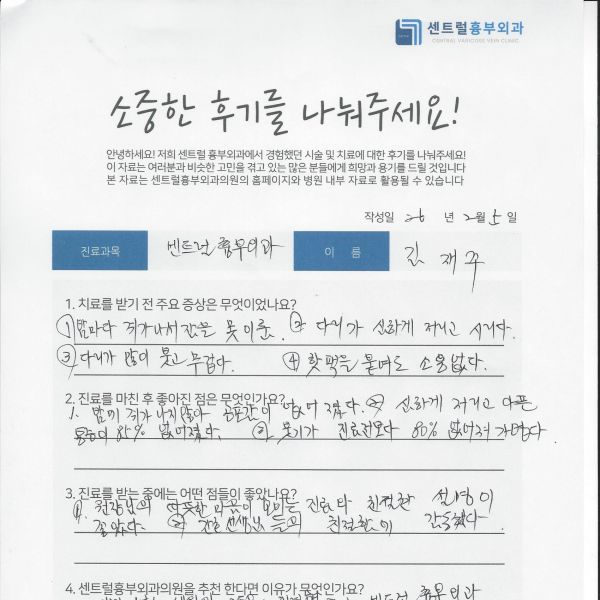 센트럴흉부외과
CENTRAL VARICOSE VEIN CLINIC
소중한 후기를 나눠주세요!
안녕하세요! 저희 센트럴 흉부외과에서 경험했던 시술 및 치료에 대한 후기를 나눠주세요!
이 자료는 여러분과 비슷한 고민을 겪고 있는 많은 분들에게 희망과 용기를 드릴 것입니다
본 자료는 센트럴흉부외과의원의 홈페이지와 병원 내부 자료로 활용될 수 있습니다
작성일 26 년 2월 5 일
진료과목 센트럴 흉부외과 이 름 김재
1. 치료를 받기 전 주요 증상은 무엇이었나요?
① 밤마다 쥐가 나서 잠을 못 이룸. ② 다리가 심하게 저리고 시리다.
③ 다리가 많이 붓고 무겁다. ④ 핫팩을 붙여도 소용없다.
2. 진료를 마친 후 좋아진 점은 무엇인가요?
1. 밤에 쥐가 나지 않아 공포감이 없어졌다. ② 심하게 저리고 아픈
통증이 85% 없어졌다. ③ 붓기가 진료전보다 80% 없어져 가볍다.
3. 진료를 받는 중에는 어떤 점들이 좋았나요?
원장님의 따뜻한 마음이 진료와 친절한 설명이
좋았다. ② 간호 선생님들의 친절함이
4. 센트럴흉부외과의원을 추천 한다면 이유가 무엇인가요?
센트럴 흉부외과